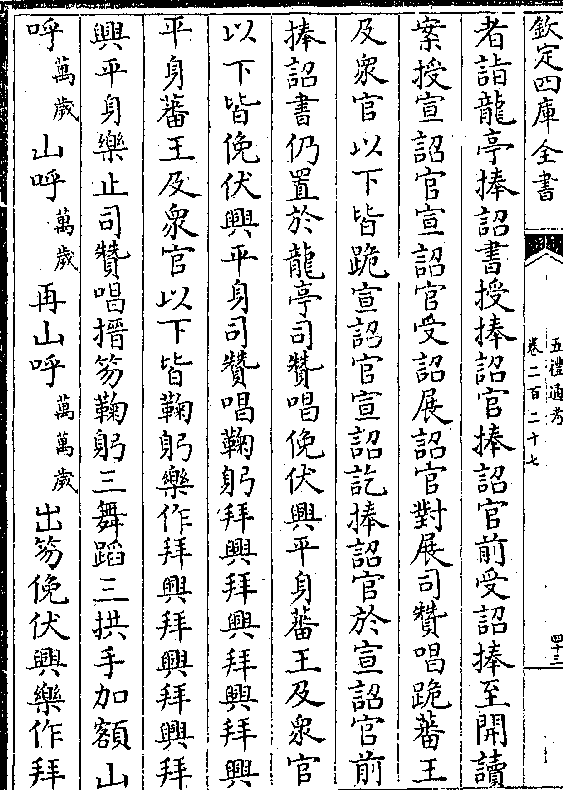 欽定四庫全書
五禮通考
卷二百二十七
四十三
者詣龍亭捧詔書授捧詔官捧詔官前受詔捧至開讀
案授宣詔官宣詔官受詔展詔官對展司贊唱跪蕃王
及衆官以下皆跪宣詔官宣詔訖捧詔官於宣詔官前
捧詔書仍置於龍亭司贊唱俛伏興平身蕃王及衆官
以下皆俛伏興平身司贊唱鞠躬拜興拜興拜興拜興
平身蕃王及衆官以下皆鞠躬樂作拜興拜興拜興拜
興平身樂止司贊唱搢笏鞠躬三舞蹈三拱手加額山
呼萬歲山呼萬歲再山呼萬萬歲出笏俛伏興樂作拜